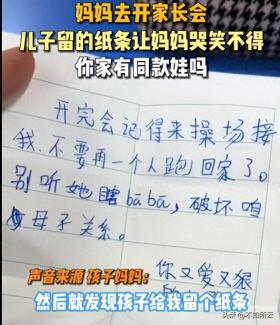 妈妈去开家长会
儿子留的纸条让妈妈哭笑不得
你家有同款娃吗
开完会记得来操场接
我,不要再一个人跑回家了。
别听她瞎bā bā,破坏咱
母子关系。
你又爱又狠
声音来源 孩子妈妈:
然后就发现孩子给我留个纸条
头条 @不知所云